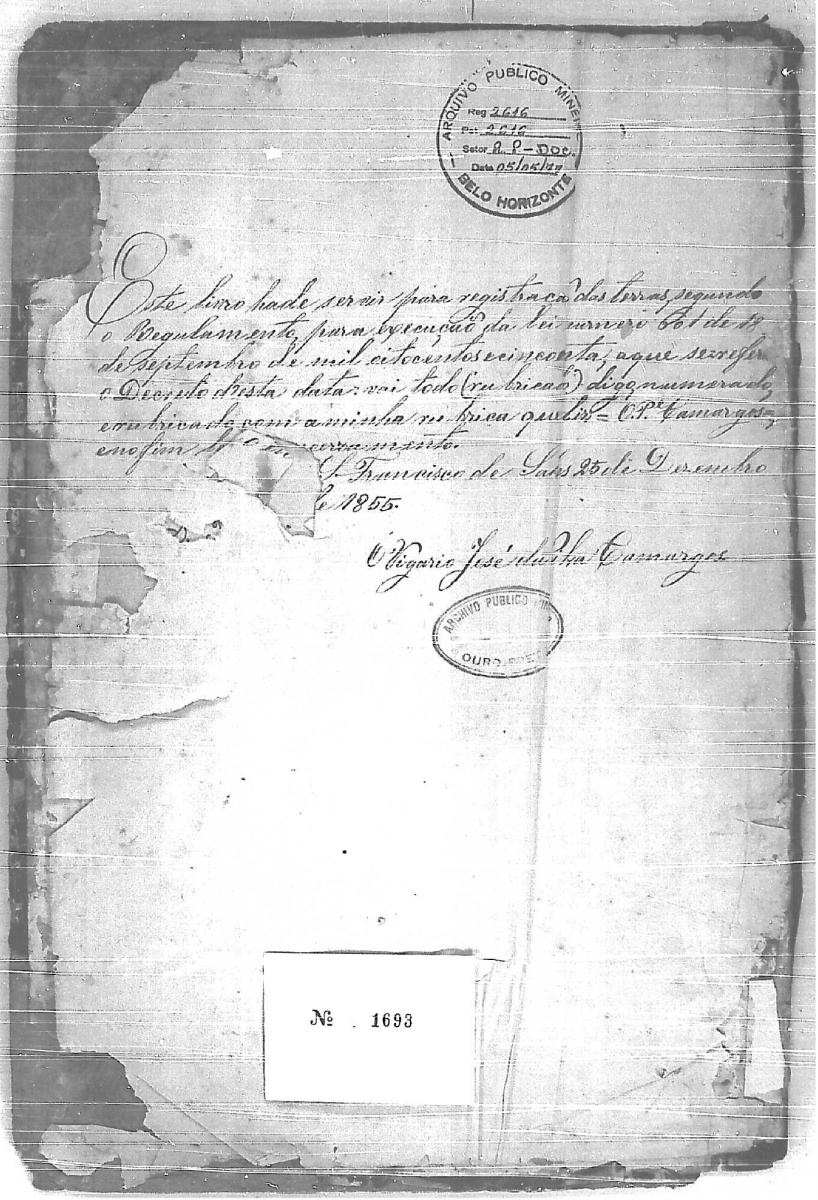 ARQUIVO PUBLICO MINEI
Reg 2616
Pct 2616
Setor R. P - Doc.
Data 05/05/
BELO HORIZONTE
Este livro hade servir para registraçaõ das terras, segundo
o Regulamento, para execuçaõ da lei numero 601 de 18
de septembro de mil oitocentos e cincoenta, aque se refere
o Decreto desta data: vai todo (rubricaõ) digo, numerado,
erubricado com aminha rubrica que diz = O P.e Camargos =
enofim encerramento.
S. Francisco de Sáles 25 de Dezembro
de 1855.
O Vigario José da Camargos
ARCHIVO PUBLICO MIN
OURO PRETO
Nº 1693